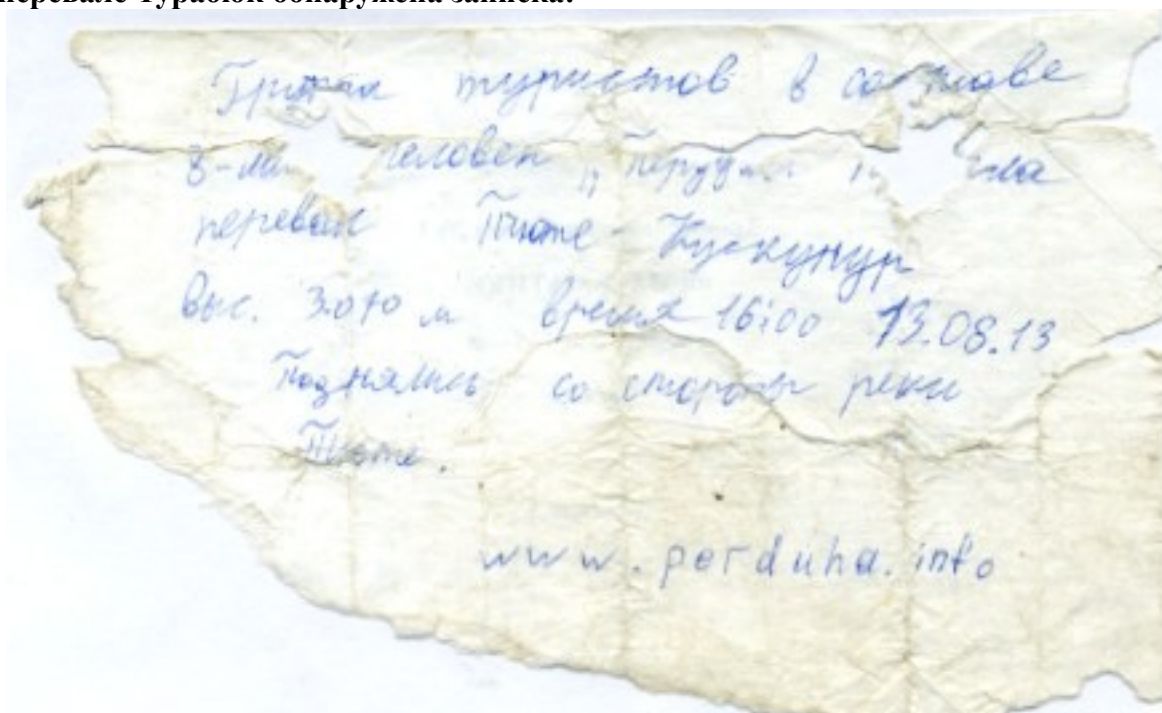 перевале Турабюк обнаружена записка:
Группа туристов в составе
8-ми человек
перевал Тюте- Кускунур
выс. 3.070 м время 16:00 13.08.13
Поднялись со стороны реки
Тюте.
www.perduha.info